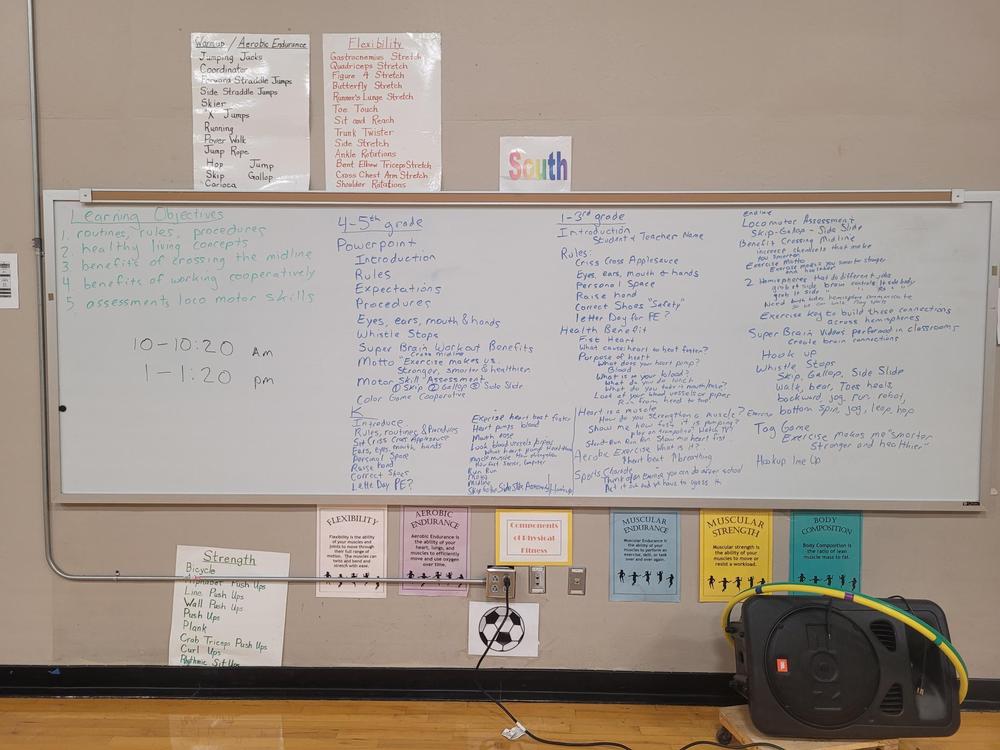 Warmup / Aerobic Endurance
Jumping Jacks
Coordinator
Forward Straddle Jumps
Side Straddle Jumps
Skier
"X" Jumps
Running
Power Walk
Jump Rope
Hop Jump
Skip Gallop
Carioca
Flexibility
Gastrocnemius Stretch
Quadriceps Stretch
Figure 4 Stretch
Butterfly Stretch
Runner's Lunge Stretch
Toe Touch
Sit and Reach
Trunk Twister
Side Stretch
Ankle Rotations
Bent Elbow Triceps Stretch
Cross Chest Arm Stretch
Shoulder Rotations
South
Learning Objectives
1. routines, rules, procedures
2. healthy living concepts
3. benefits of crossing the midline
4. benefits of working cooperatively
5. assessments, loco motor skills
10-10:20 Am
1-1:20 pm
4-5th grade
Powerpoint
Introduction
Rules
Expectations
Procedures
Eyes, ears, mouth & hands
Whistle Stops
Super Brain Workout Benefits
Cross midline
Motto "Exercise makes us
Stronger, smarter & healthier
Motor Skill Assessment
① Skip ② Gallop ③ Side Slide
Color Game Cooperative
K
Introduce
Rules, routines & Procedures
Sit Criss Cross Applesauce
Ears, eyes, mouth, hands
Personal Space
Raise hand
Correct Shoes
Letter Day PE?
Exercise heart beat faster
Heart pumps blood
Mouth nose
Look blood vessels/pipes
What heart pump
Run Run
Motto
Midline
1-3rd grade
Introduction
Student & Teacher Name
Rules:
Criss Cross Applesauce
Eyes, ears, mouth & hands
Personal Space
Raise hand
Correct Shoes "Safety"
letter Day for PE?
Health Benefit
Fist Heart
What causes heart to beat faster?
Purpose of heart
What does your heart pump?
Blood
What is in your blood?
Look at your blood vessels or pipes
Run from head to toe!
Heart is a muscle
How do you strengthen a muscle? Exercise
Show me how fast it is pumping?
play on trampoline? Watch TV?
Short-Run Run Run Show me heart first
Aerobic Exercise What is it?
Heart beat & breathing
Sports Charade
Think of an Exercise you can do after school
Locomotor Assessment
Skip-Gallop-Side Slide
Benefit Crossing Midline
increase chemicals that make
you smarter
Exercise Motto
Exercise makes you smarter stronger
and healthier
2 Hemispheres that do different jobs
Exercise key to build these connections
across hemispheres
Super Brain Videos performed in classrooms
Create brain connections
Hook up
Whistle Stops
Skip, Gallop, Side Slide
walk, bear, Toes heels,
backward, jog, run, robot,
bottom spin, jog, leap, hop
Tag Game
Exercise makes me "smarter
Stronger and healthier"
Hookup line Up
FLEXIBILITY
Flexibility is the ability of your muscles and joints to move through their full range of motion. The muscles can twist and bend and stretch with ease.
AEROBIC
ENDURANCE
Aerobic Endurance is the ability of your heart, lungs, and muscles to efficiently move and use oxygen over time.
Components
of Physical
Fitness
MUSCULAR
ENDURANCE
Muscular Endurance is the ability of your muscles to perform an exercise, skill, or task over and over again.
MUSCULAR
STRENGTH
Muscular strength is the ability of your muscles to move or resist a workload.
BODY
COMPOSITION
Body Composition is the ratio of lean muscle mass to fat.
Strength
Bicycle
Alphabet Push Ups
Line Push Ups
Wall Push Ups
Push Ups
Plank
Crab Triceps Push Ups
Curl Ups
Rhythmic Sit Ups
JBL
EON